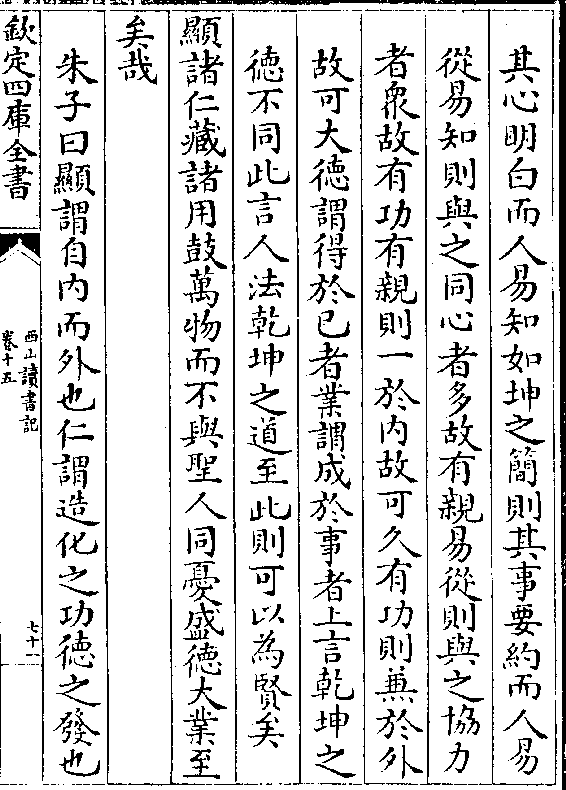 其心明白而人易知如坤之簡則其事要約而人易
從易知則與之同心者多故有親易從則與之協力
者衆故有功有親則一於内故可久有功則兼於外
故可大德謂得於已者業謂成於事者上言乾坤之
德不同此言人法乾坤之道至此則可以為賢矣
顯諸仁藏諸用鼓萬物而不與聖人同憂盛德大業至
矣哉
朱子曰顯謂自内而外也仁謂造化之功德之發也
欽定四庫全書
西山讀書記
卷十五
七十一